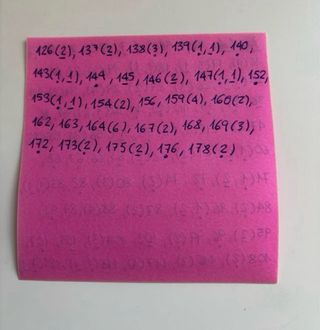 126(2), 137(2), 138(3), 139(1,1), 140,
143(1,1), 144, 145, 146(2), 147(1,1), 152,
153(1,1), 154(2), 156, 159(4), 160(2),
162, 163, 164(6), 167(2), 168, 169(3),
172, 173(2), 175(2), 176, 178(2)